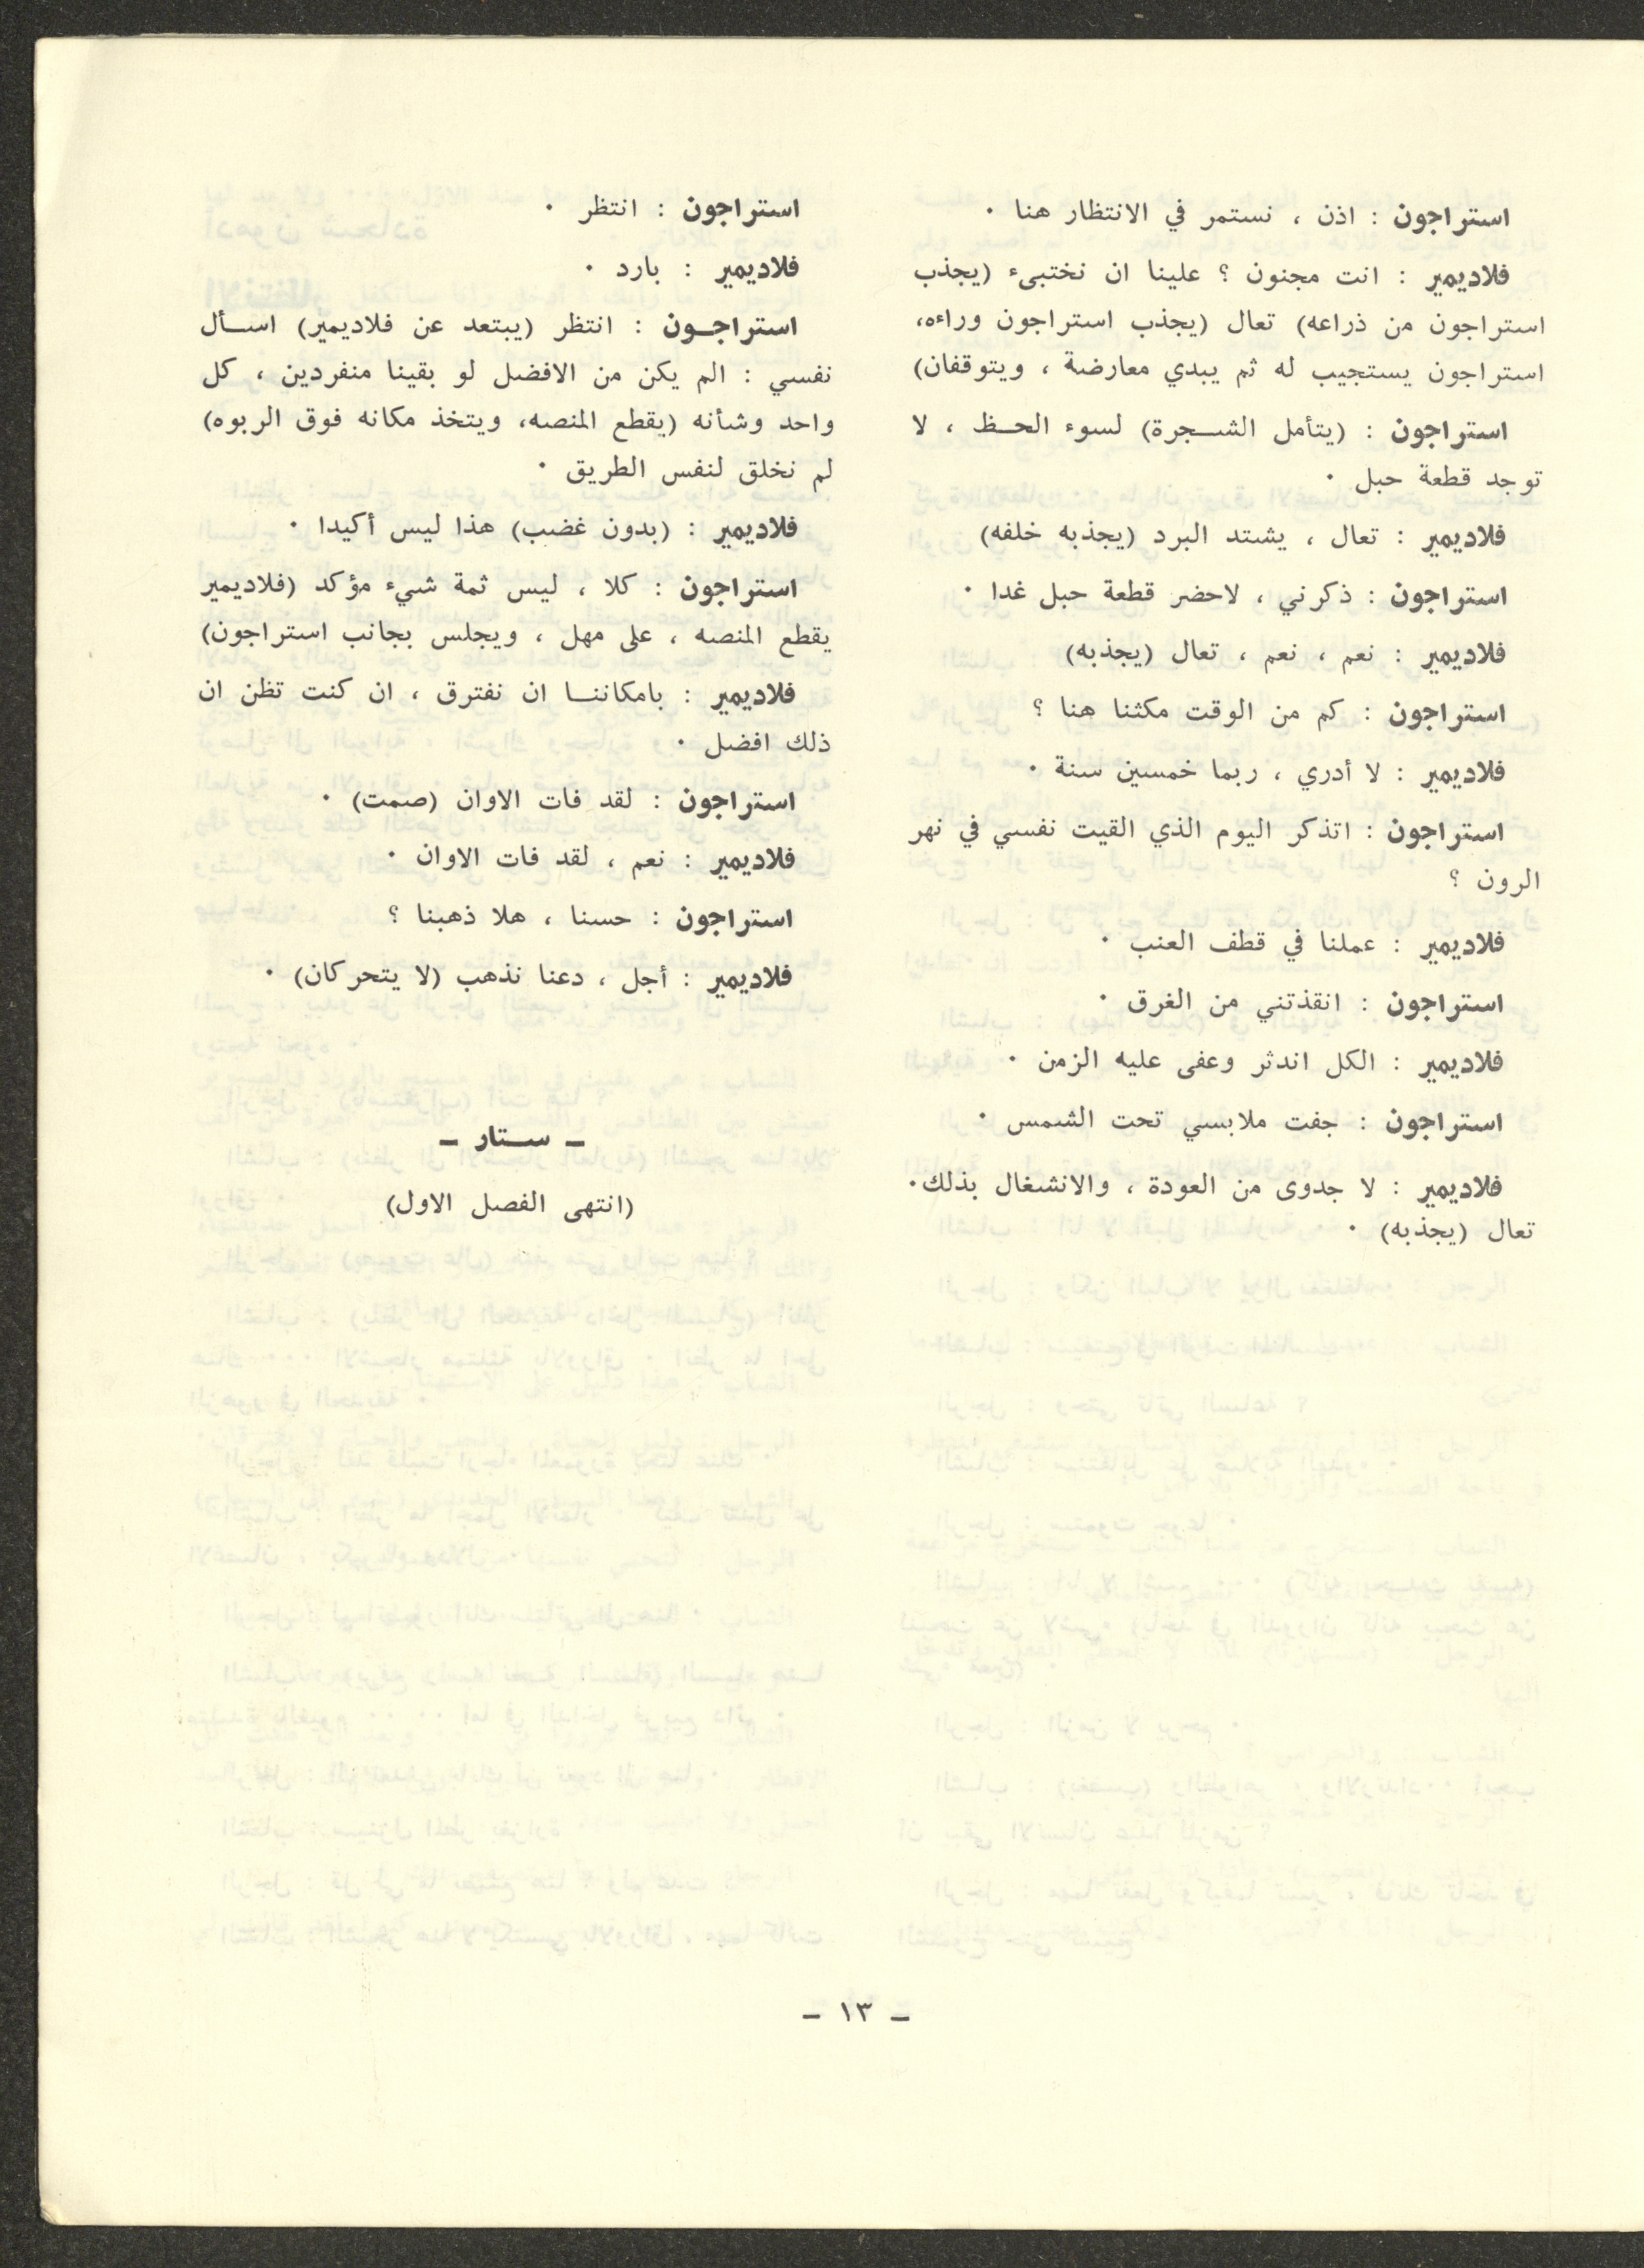 استراجون : اذن ، نستمر في الانتظار هنا ٠
فلاديمير : انت مجنون ؟ علينا ان نختبىء (يجذب
استراجون من ذراعه) تعال (يجذب استراجون وراءه،
استراجون يستجيب له ثم يبدي معارضة ، ويتوقفان)
استراجون : (يتأمل الشــجرة) لسوء الحــظ ، لا
توجد قطعة حبل ٠
فلاديمير : تعال ، يشتد البرد (يجذبه خلفه)
استراجون : ذكرني ، لاحضر قطعة حبل غدا ٠
فلاديمير : نعم ، نعم ، تعال (يجذبه)
استراجون : كم من الوقت مكثنا هنا ؟
فلاديمير : لا أدري ، ربما خمسين سنة ٠
استراجون : اتذكر اليوم الذي القيت نفسي في نهر
الرون ؟
فلاديمير : عملنا في قطف العنب ٠
استراجون : انقذتني من الغرق ٠
فلاديمير : الكل اندثر وعفى عليه الزمن ٠
استراجون : جفت ملابسي تحت الشمس ٠
فلاديمير : لا جدوى من العودة ، والانشغال بذلك٠
تعال (يجذبه) ٠
استراجون : انتظر ٠
فلاديمير : بارد ٠
استراجــون : انتظر (يبتعد عن فلاديمير) اســأل
نفسي : الم يكن من الافضل لو بقينا منفردين ، كل
واحد وشأنه (يقطع المنصه، ويتخذ مكانه فوق الربوه)
لم نخلق لنفس الطريق ٠
فلاديمير : (بدون غضب) هذا ليس أكيدا ٠
استراجون : كلا ، ليس ثمة شيء مؤكد (فلاديمير
يقطع المنصه ، على مهل ، ويجلس بجانب استراجون)
فلاديمير : بامكاننــا ان نفترق ، ان كنت تظن ان
ذلك افضل ٠
استراجون : لقد فات الاوان (صمت) ٠
فلاديمير : نعم ، لقد فات الاوان ٠
استراجون : حسنا ، هلا ذهبنا ؟
فلاديمير : أجل ، دعنا نذهب (لا يتحركان) ٠
– ســتار –
(انتهى الفصل الاول)
– ١٣ –